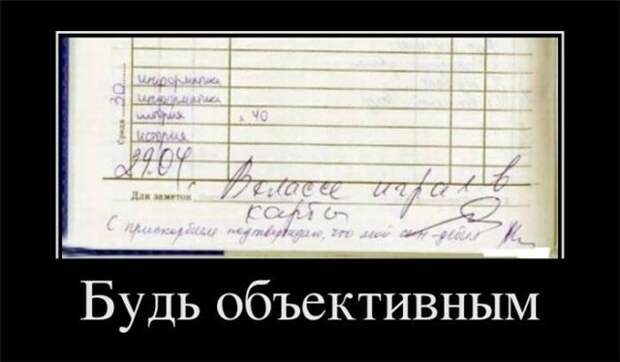 Среда 30
информатика
информатика
история § 40
история
29.04
Для заметок В классе играл в
карты
С прискорбием подтверждаю, что мой сын-дебил
Будь объективным